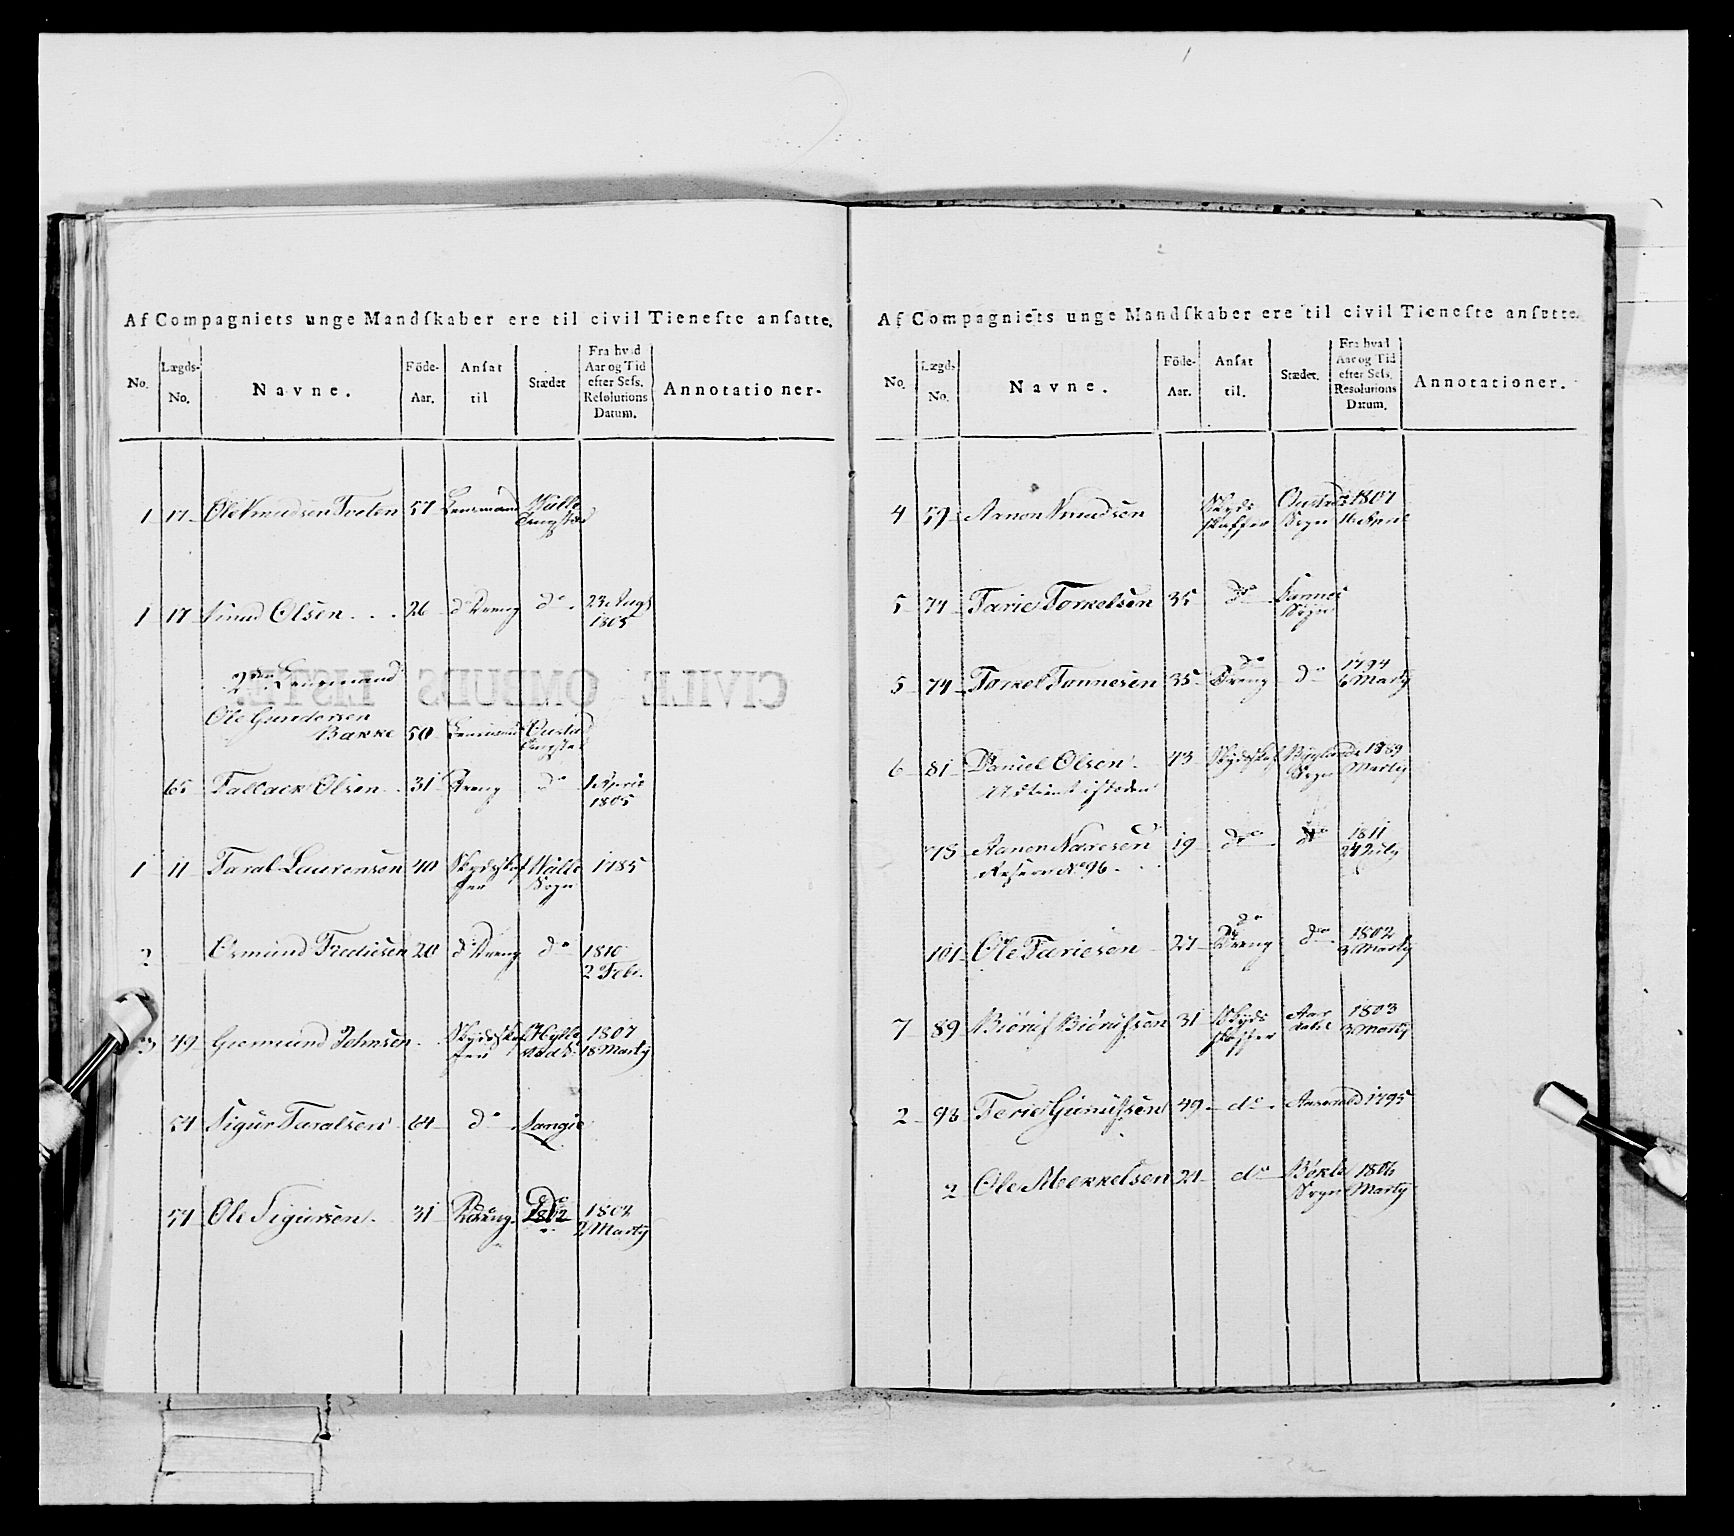 Af Compagniets unge Mandſkaber ere til civil Tieneſte anſatte.
No. Lægds-No. Navne. Föde-Aar. Anſat til Stædet Fra hvad Aar og Tid efter Seſs. Reſolutions Datum. Annotationer.
1 17 Ole Knudsen Tveten 57 Lensmand Walle
1 17 Knud Olsen 26 do Dreng do 23 Aug 1805
2den Lensmand
Ole Gundersen
Bakke 50 Lensmand
65 Tallack Olsen 31 Dreng do 1 April 1805
1 11 Taral Laurensen 40 Skydsskaffer Walle Sogn 1785
2 Osmund Fredicsen 20 do Dreng do 1810 2 Febr.
3 49 Giermund Johnsen Skydsskaffer Hylle 1807 18 Martÿ
54 Sigur Taralsen 64 do Langie
54 Ole Sigursen 31 Dreng do 1802 2 Martÿ
CIVILE OMBUDS LISTE
Af Compagniets unge Mandſkaber ere til civil Tieneſte anſatte.
No. Lægds-No. Navne. Föde-Aar. Anſat til. Stædet. Fra hvad Aar og Tid efter Seſs. Reſolutions Datum. Annotationer.
4 59 Aanon Knudsen Skyds skaffer Sogn 1807
5 74 Tarie Torkelsen 35 do Sannes Sogn
5 74 Torkel Tonnesen 35 do Dreng do 1794 6 Martÿ
6 81 Daniel Olsen 73 Skydsskaf Byglands Sogn 1789 Martÿ
75 Aanon Naresen 19 do do 1811 24 July
Reserve No 96
101 Ole Tariesen 27 do Dreng do 1802 2 Martÿ
7 89 Biörif Biörufsen 31 Skyds skaffer 1803 3 Martÿ
2 98 Terie Gunufsen 49 do 1795
2 Ole Mekkelsen 24 do Bøkle Sogn 1806 Martÿ